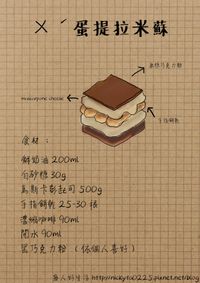 蛋提拉米蘇
無糖巧克力粉
mascarpone cheese
手指餅乾
食材：
鮮奶油 200ml
白砂糖 30g
馬斯卡彭起司 500g
手指餅乾 25-30 根
濃縮咖啡 90ml
開水 90ml
黑巧克力粉（依個人喜好）
http://nickyto0225.pixnet.net/blog